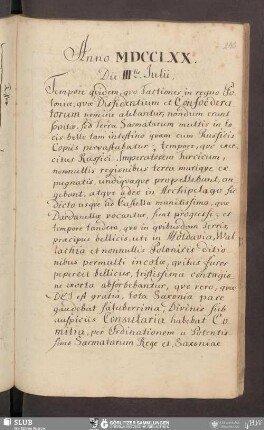 Anno MDCCLXX.
Die III tia Julii.
Tempore quidem, quo factiones in regno Po-
loniae, quae Dissidentium et Confoedera
torum nomine alebantur, nondum erant
sed terra Sarmatarum multis in lo
cis bello tam intestino quam cum Russicis
Copiis pervastabatur; tempore, quo exer
citus Russici Imperatorem Turcicum,
nonnullis regionibus terra marique ex
pugnatis undiquaque propellebant, an
gebant, atque adeo in Archipelago sic
dicto usque ad Castella munitissima, quae
Dardanella vocantur, sunt progressi, et
tempore tandem, quo in quibusdam terris
praecipue bellicis, uti in Moldavia, Wal
lachia et nonnullis Poloniae ditio
nibus permulti incolae, quibus furor
pepercit bellicus, tristissima contagio
ne exorta absorbebantur, quo vero, quae
DEI est gratia, tota Saxonia pace
gaudebat saluberrima, Divinis sub
auspiciis Consularia habebat Co
mitia, per Ordinationem a Potentis
simo Sarmatarum Rege et Saxoniae
SLUB